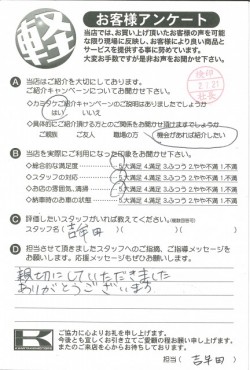 軽
お客様アンケート
当店では、お買い上げ頂いたお客様の声を可能
な限り現場に反映し、お客様により良い商品と
サービスを提供する事に努めています。
大変お手数ですが是非お声をお聞かせ下さい。
A 当店はご紹介を大切にしております。
ご紹介キャンペーンについてお聞かせ下さい。
◇カミタケご紹介キャンペーンのご説明はありましたでしょうか
はい いいえ
◇具体的にご紹介頂ける方とのご関係をお聞かせ頂けますでしょうか
ご親族 ご友人 職場の方 機会があれば紹介したい
B 当店を実際にご利用になった印象をお聞かせ下さい。
◇総合的な満足度 5.大満足 4.満足 3.ふつう 2.やや不満 1.不満
◇スタッフの対応 5.大満足 4.満足 3.ふつう 2.やや不満 1.不満
◇お店の雰囲気、清掃 5.大満足 4.満足 3.ふつう 2.やや不満 1.不満
◇納車時のお車の状態 5.大満足 4.満足 3.ふつう 2.やや不満 1.不満
C 評価したいスタッフがいれば教えてください。(複数回答可)
スタッフ名( 吉牟田 )( )( )
D 担当させて頂きましたスタッフへのご指摘、ご指導メッセージを
お願いします。応援メッセージもお待ちしております。
親切にしていただきました
ありがとうございます
K
ご協力に心よりお礼を申し上げます。
今後とも宜しくお引き立てご愛顧の程お願い申し上げます。
またのご来店を心からお待ちしております。
担当( 吉牟田 )